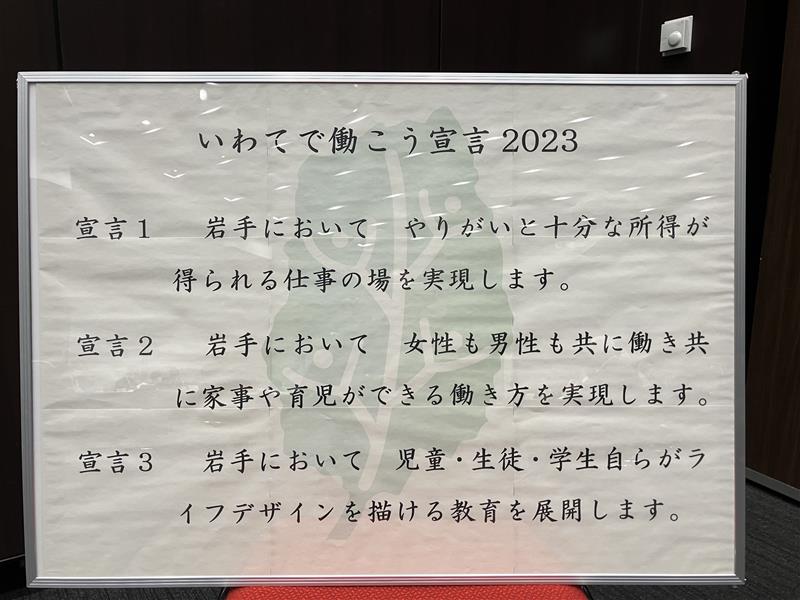 いわてで働こう宣言2023
宣言1 岩手において やりがいと十分な所得が
得られる仕事の場を実現します。
宣言2 岩手において 女性も男性も共に働き共
に家事や育児ができる働き方を実現します。
宣言3 岩手において 児童・生徒・学生自らがラ
イフデザインを描ける教育を展開します。